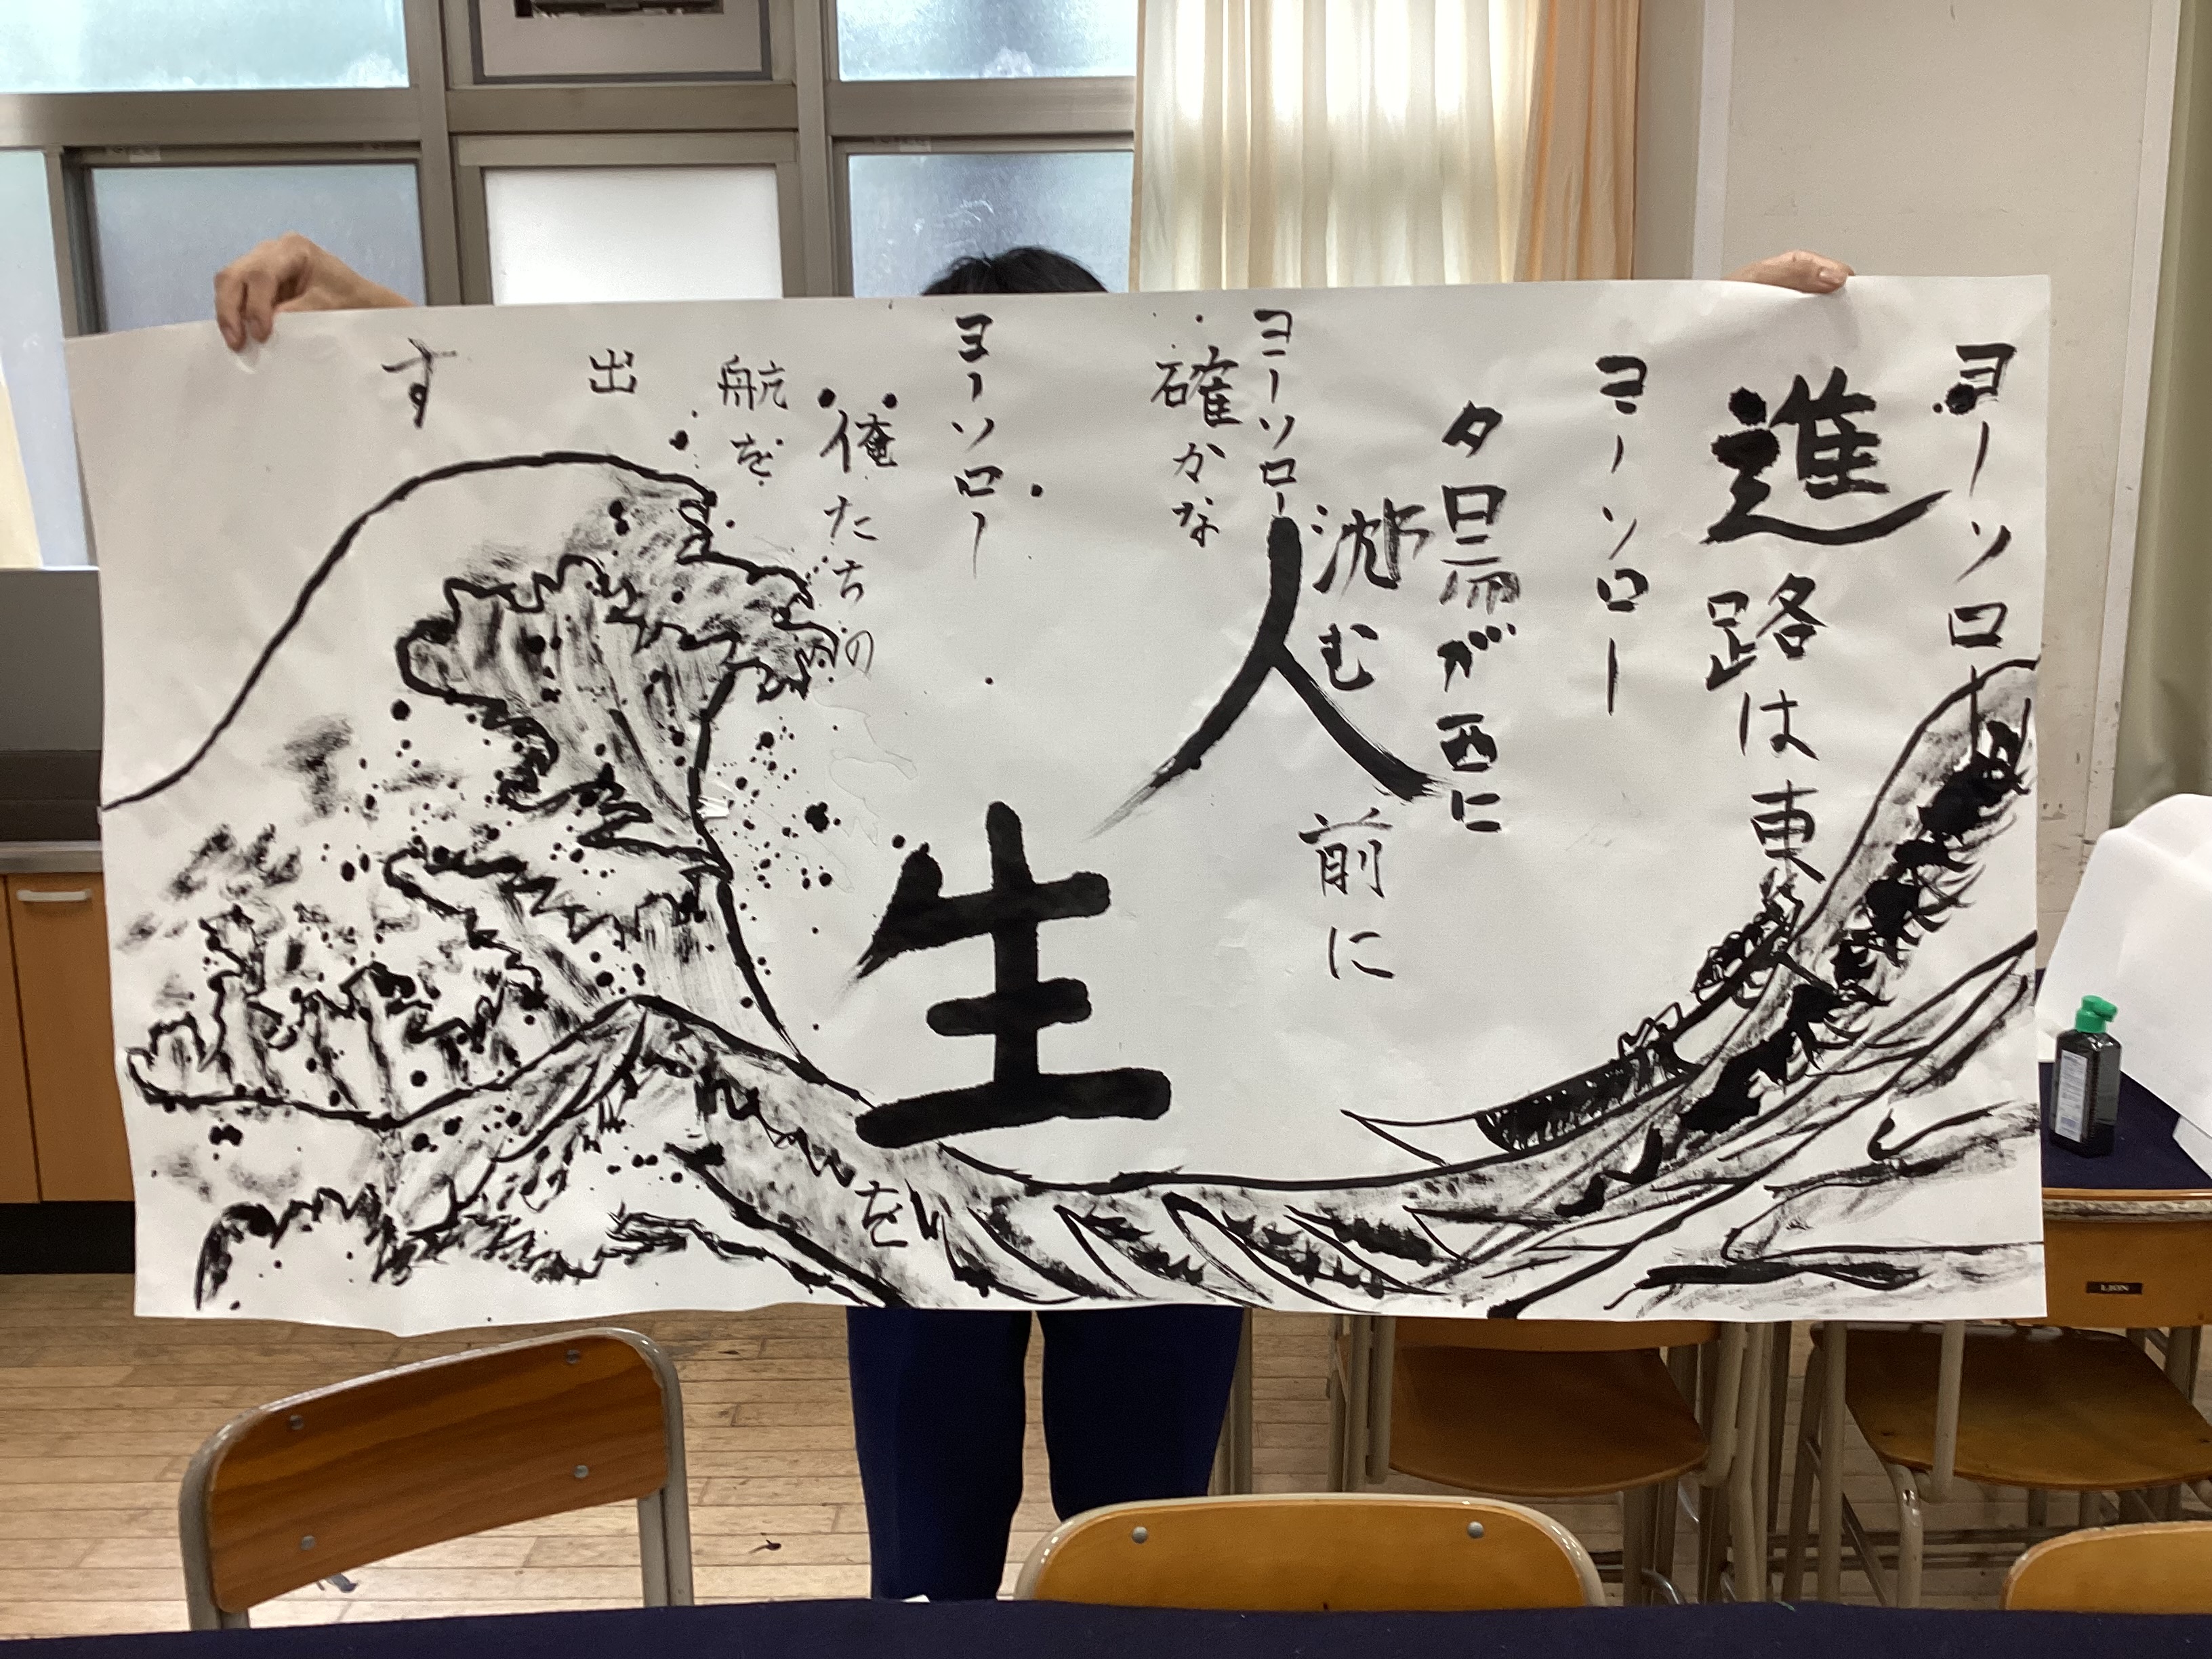 ヨーソロー
進路は東へ
ヨーソロー
夕昜が西に
沈む前に
ヨーソロー
確かな
人生
を
ヨーソロー
俺たちの
航を
出
す
LION